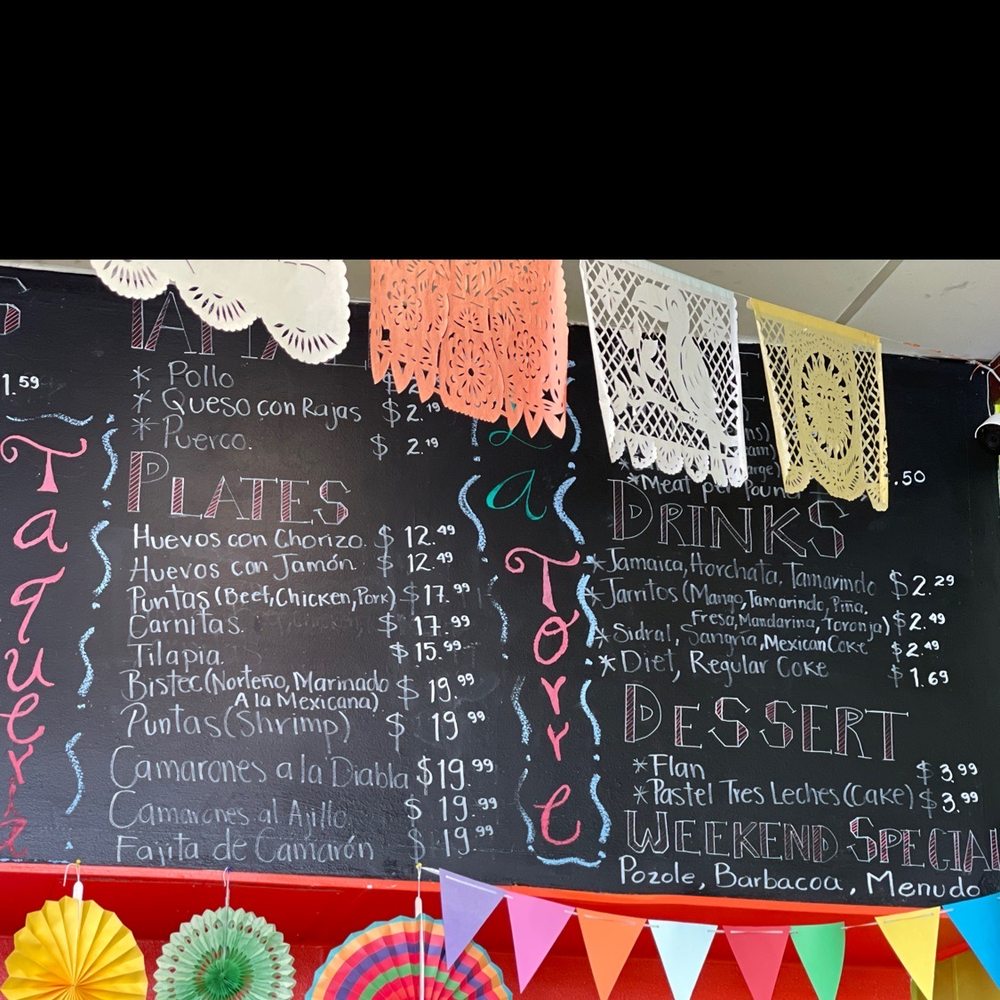 1.59
Taquería
* Pollo
* Queso con Rajas $2.19
* Puerco. $2.19
PLATES
Huevos con Chorizo. $12.49
Huevos con Jamón. $12.49
Puntas (Beef, Chicken, Pork) $17.99
Carnitas. $17.99
Tilapia. $15.99
Bistec (Norteño, Marinado $19.99
A la Mexicana)
Puntas (Shrimp) $19.99
Camarones a la Diabla $19.99
Camarones al Ajillo. $19.99
Fajita de Camarón $19.99
La Torre
* Meat per Pound .50
DRINKS
* Jamaica, Horchata, Tamarindo $2.29
* Jarritos (Mango, Tamarindo, Piña,
Fresa, Mandarina, Toronja) $2.49
* Sidral, Sangria, Mexican Coke $2.49
* Diet, Regular Coke $1.69
DESSERT
* Flan $3.99
* Pastel Tres Leches (Cake) $3.99
WEEKEND SPECIAL
Pozole, Barbacoa, Menudo